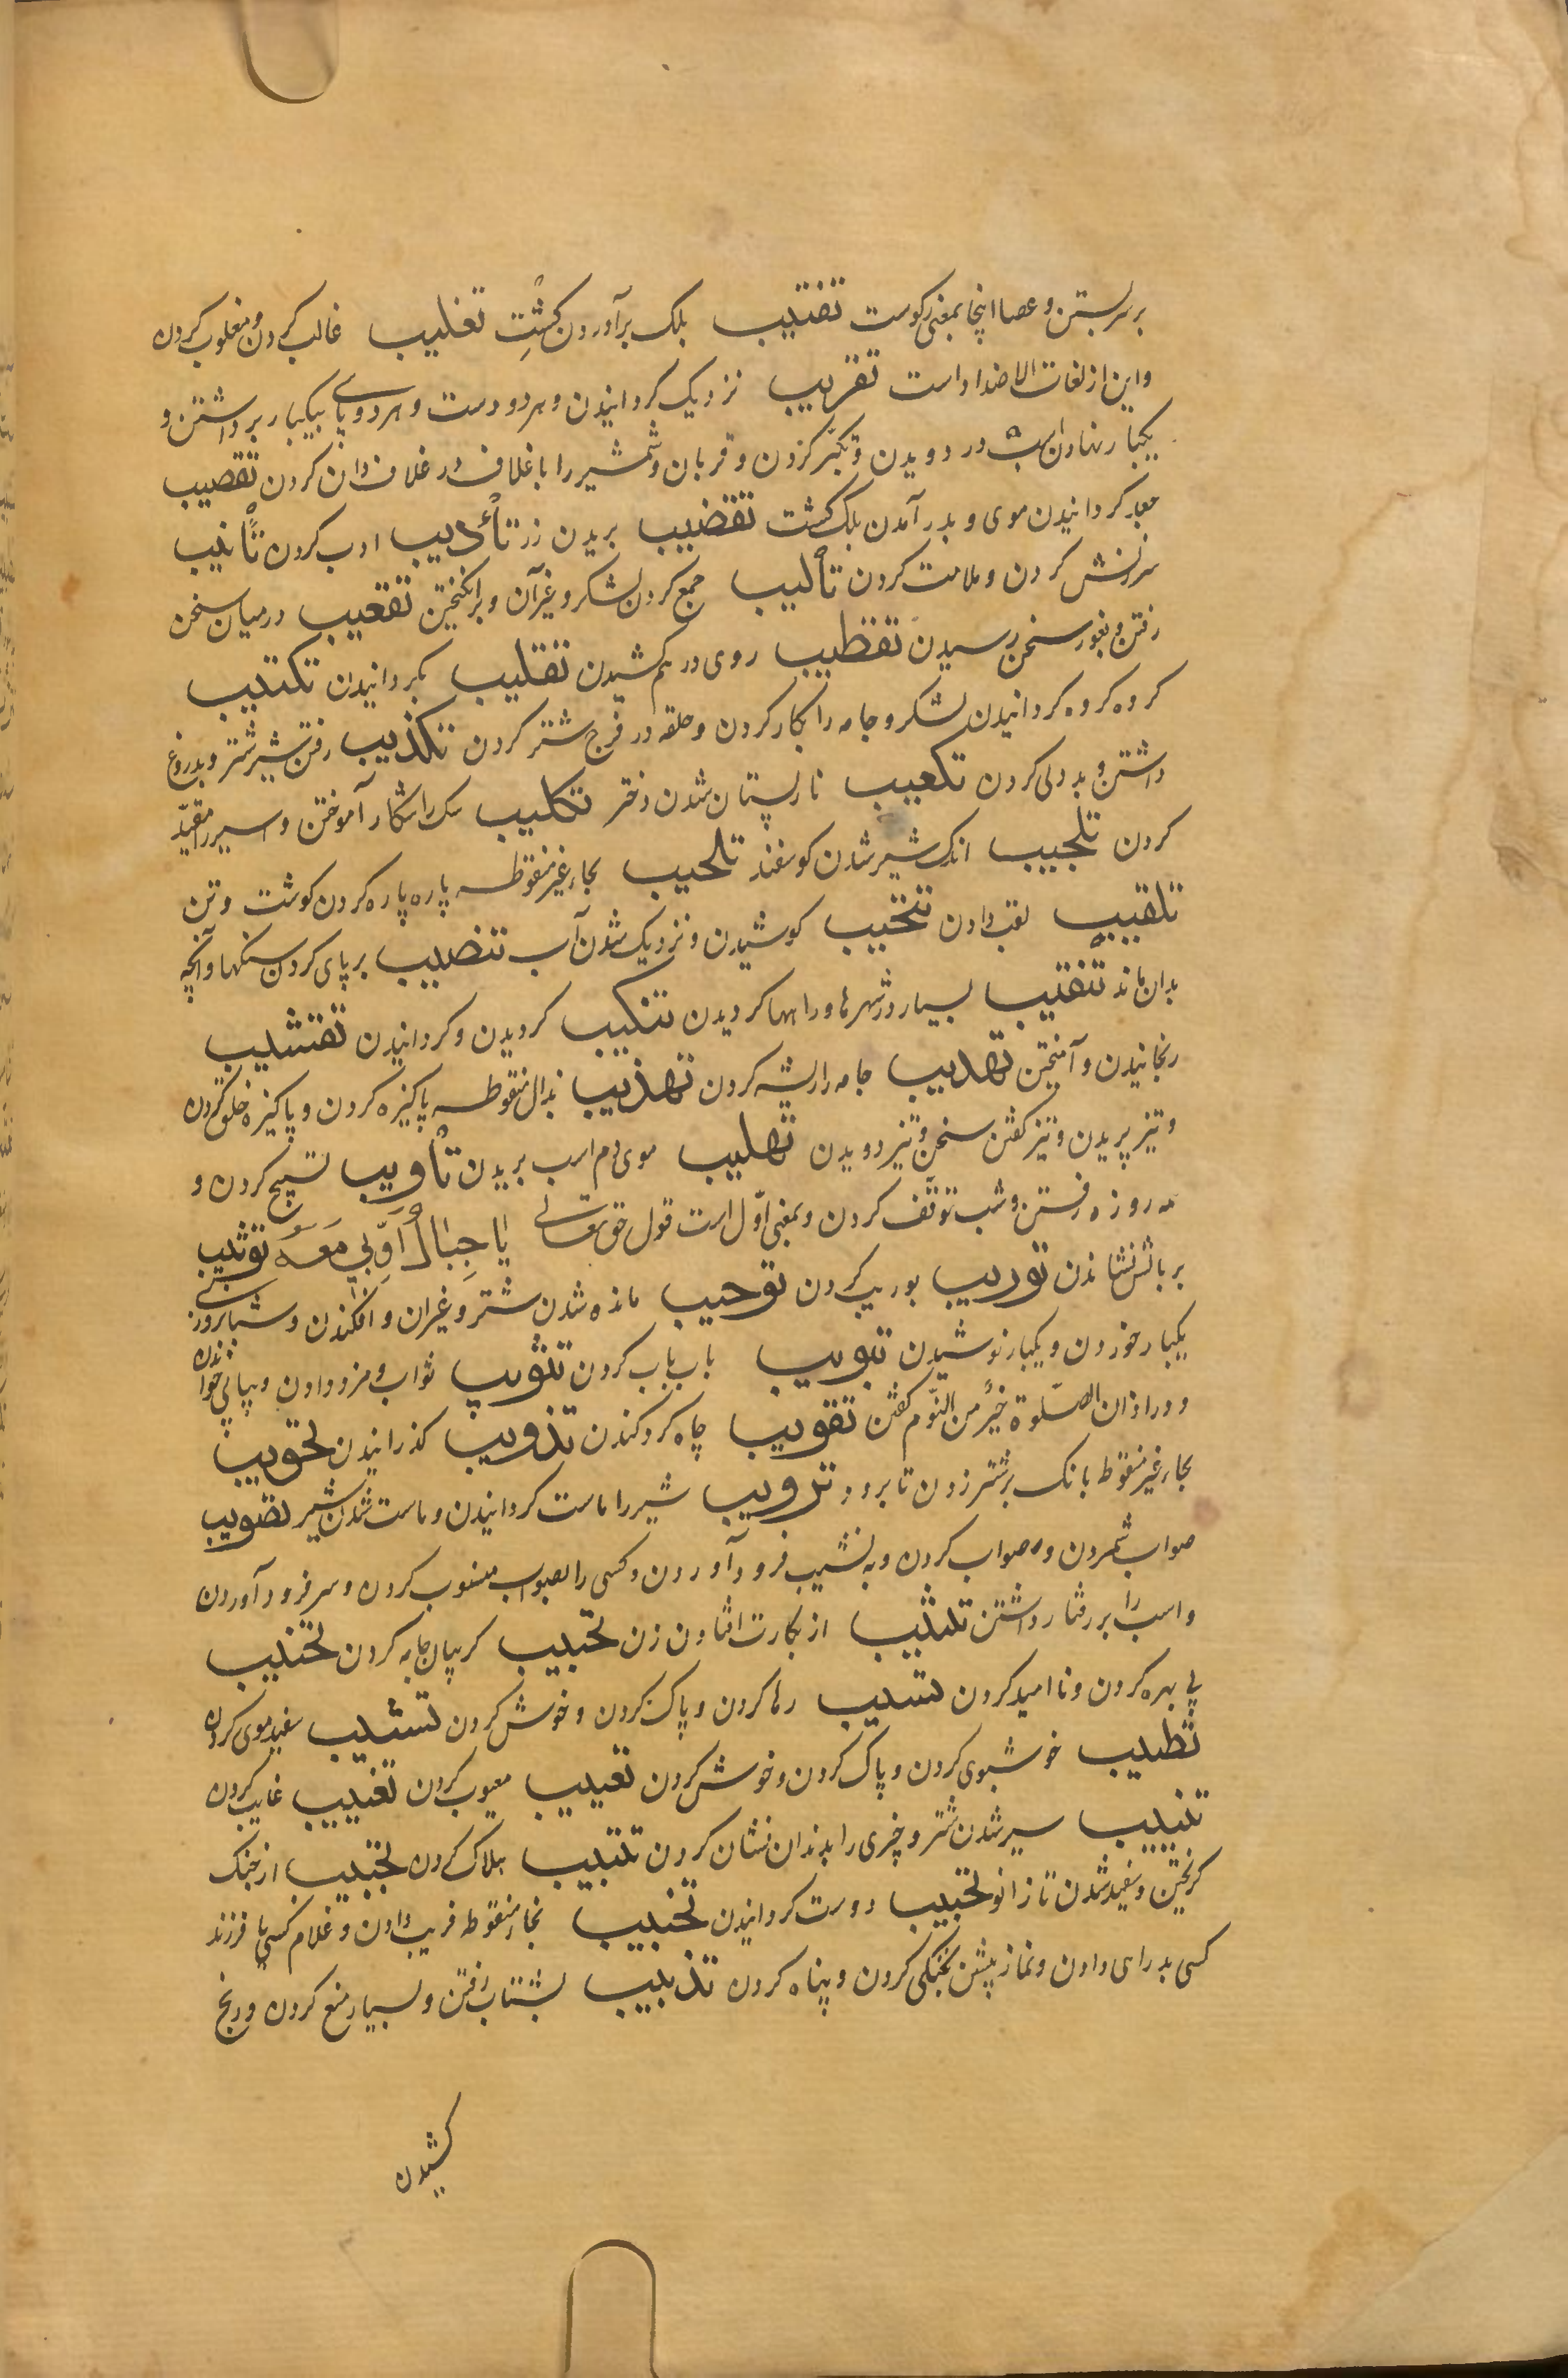 بر سر بستن و عصا اینجا بمعنی رکوست تقتیب بلک برآوردن کِشْتِ تغلیب غالب کردن و مغلوب کردن
واین از لغات الاضداد است تقریب نزدیک کردانیدن و هر دو دست و هر دو پای بیکبار برداشتن و
یکبار نهادن اسب در دویدن و تکبّر کردن و قربان و شمشیر را با غلاف و در غلاف دان کردن تقصیب
مجعد کردانیدن موی و بدر آمدن بلک کشت تقضیب بریدن رز تأدیب ادب کردن تأنیب
سرزنش کردن و ملامت کردن تألیب جمع کردن لشکر و غیر آن و برانکیختن تقعیب در میان سخن
رفتن و بغور سخن رسیدن تقطیب روی در هم کشیدن تقلیب بکردانیدن تکتیب
کروه کروه کردانیدن لشکر و جامه را بکار کردن و حلقه در فرج شتر کردن تکذیب رفتن شیر شتر و بدروغ
داشتن و بد دلی کردن تکعیب نارپستان شدن دختر تکلیب سک را شکار آموختن و اسیر را مقیّد
کردن تلجیب اندک شیر شدن کوسفند تلحیب بحاء غیر منقوطه پاره پاره کردن کوشت و تن
تلقیب لقب دادن تنحیب کوشیدن و نزدیک شدن آب تنصیب بر پای کردن سنکها و آنچه
بدان ماند تنقیب بسیار در شهرها و راهها کردیدن تنکیب کردیدن و کردانیدن تقشیب
رنجانیدن و آمیختن تهدیب جامه را ریشه کردن تهذیب بذال منقوطه پاکیزه کردن و پاکیزه خلق کردن
و تیز پریدن و تیز کفتن سخن و تیز دویدن تهلیب موی دم اسب بریدن تأویب تسبیح کردن و
همه روزه رفتن و شب توقّف کردن و بمعنی اوّل است قول حق تعالی یَا جِبَالُ أَوِّبِي مَعَهُ توثیب
بر بالش نشاندن توریب بوریب کردن توجیب مانده شدن شتر و غیر آن و افکندن و شبانروزی
یکبار خوردن و یکبار نوشیدن تبویب باب باب کردن تثویب ثواب و مزد دادن و پیاپی خواندن
و در اذان الصّلوة خیرٌ من النّوم کفتن تقویب چاه کرد کندن تذویب کذرانیدن تحویب
بحاء غیر منقوطه بانک بر شتر زدن تا برود ترویب شیر را ماست کردانیدن و ماست شدن شیر تصویب
صواب شمردن و صواب کردن و به نشیب فرود آوردن و کسی را بصواب منسوب کردن و سر فرود آوردن
و اسب را بر رفتار داشتن تثییب از بکارت افتادن زن تجییب کریبان جامه کردن تخییب
بی بهره کردن و ناامید کردن تسییب رها کردن و پاک کردن و خوش کردن تشییب سفید موی کردن
تطییب خوشبوی کردن و پاک کردن و خوش کردن تعییب معیوب کردن تغییب غایب کردن
تنییب سیر شدن شتر و چیزی را بدندان نشان کردن تتبیب هلاک کردن تجبیب از جنک
کریختن و سفید شدن تا زانو تحبیب دوست کردانیدن تخبیب بخاء منقوطه فریب دادن و غلام کسی یا فرزند
کسی بد راهی دادن و نماز پیشین بخنکی کردن و پناه کردن تذبیب بشتاب رفتن و بسیار منع کردن و رنج
کشیدن